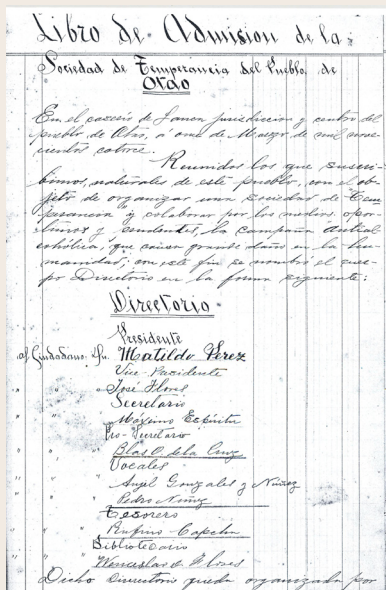 Libro de Admision de la
Sociedad de Temperancia del Pueblo de
Otao
En el caserio de Jamon jurisdiccion y centro del
pueblo de Otao, a once de Marzo de mil nove
cientos catorce.
Reunidos los que suscri-
bimos, naturales de este pueblo, con el ob-
jeto de organizar una Sociedad de Tem
perancia y colaborar por los medios opor
tunos y prudentes, la campaña antial
cohólica, que causa grande daño en la hu-
manidad, con este fin se nombró el cuer-
po Directorio en la forma siguiente:
Directorio
Presidente
al Ciudadano: Dn. Matilde Perez
Vice-Presidente
" " " José Flores
Secretario
" " " Maximo Espiritu
Pro-Secretario
" " " Blas O. de la Cruz
Vocales
" " " Anjel Gonzales y Nuñez
" " " Pedro Nuñez
Tesorero
" " " Rufino Capcha
Bibliotecario
" " " Wenceslao d. Flores
Dicho Directorio queda organizado por